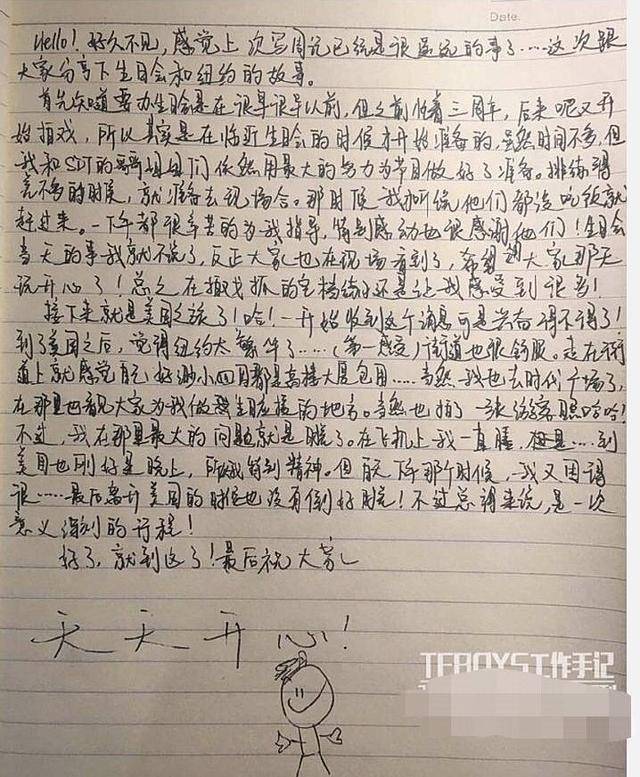 Date.
Hello! 好久不见，感觉上次写周记已经是很遥远的事了……这次跟
大家分享下生日会和纽约的故事。
首先知道要办生日会是在很早很早以前，但之前忙着三周年，后来呢又开
始拍戏，所以其实是在临近生日会的时候才开始准备的，虽然时间不多，但
我和SDT的哥哥姐姐们依然用最大的努力为节目做好了准备。排练得
差不多的时候，就准备去现场合。那时候我听说他们都没吃饭就
赶过来。一下午都很辛苦的为我指导，特别感动也很感谢他们！生日会
当天的事我就不说了，反正大家也在现场看到了，希望大家那天
玩开心了！总之在拍戏抓的空档练习还是让我感受到很多！
接下来就是美国之旅了！哈！一开始收到这个消息可是兴奋得不得了！
到了美国之后，觉得纽约太繁华了……(第一感受)街道也很舒服。走在街
道上就感觉自己好渺小四周都是高楼大厦包围……当然我也去时代广场了，
在那里也看见大家为我做生日应援的地方。当然也拍了一张游客照哈哈！
不过，我在那里最大的问题就是睡了。在飞机上我一直睡，但是……到
美国也刚好是晚上，所以我特别精神。但每天下午那个时候，我又困得
很……最后离开美国的时候也没有倒好时差！不过总得来说，是一次
意义深刻的行程！
好了，就到这了！最后祝大家
天天开心！
TFBOYS工作手记